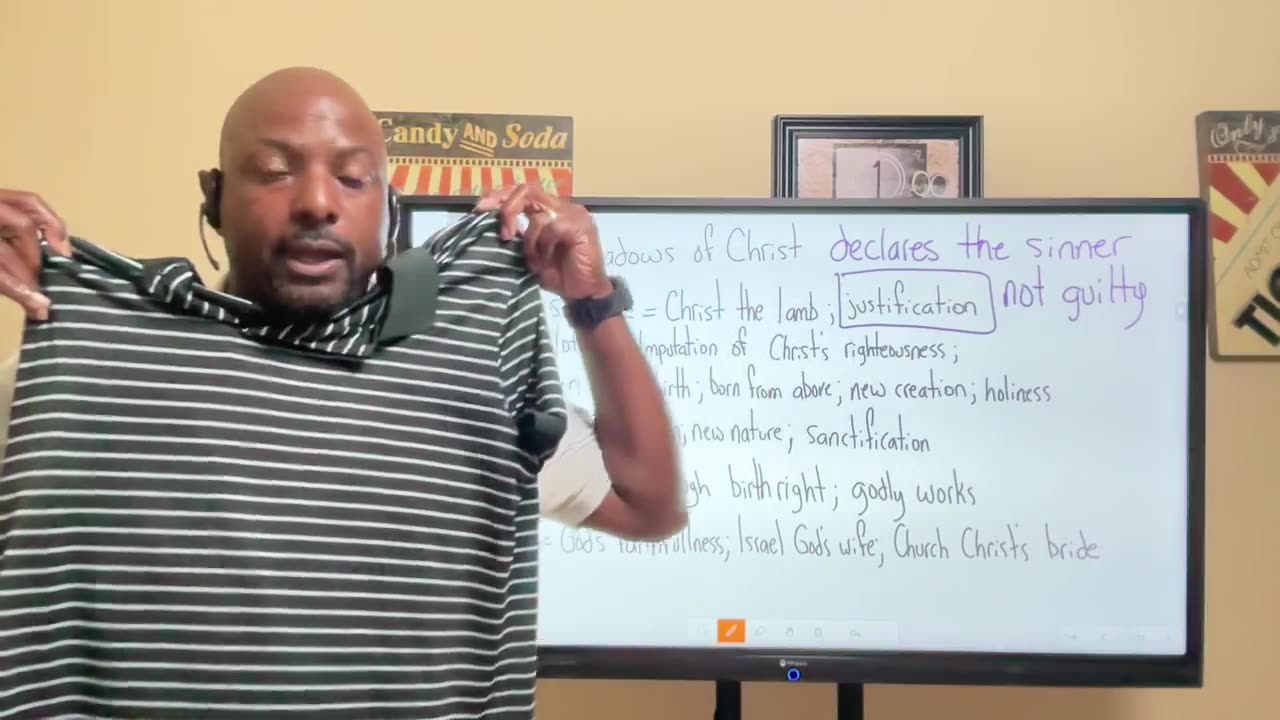 Candy AND Soda
Only
1 00
ADMIT ONE
TIC
adows of Christ declares the sinner
= Christ the lamb; justification not guilty
Imputation of Christ's righteousness;
irth; born from above; new creation; holiness
, new nature; sanctification
gh birthright; godly works
= God's faithfullness; Israel God's wife; Church Christ's bride